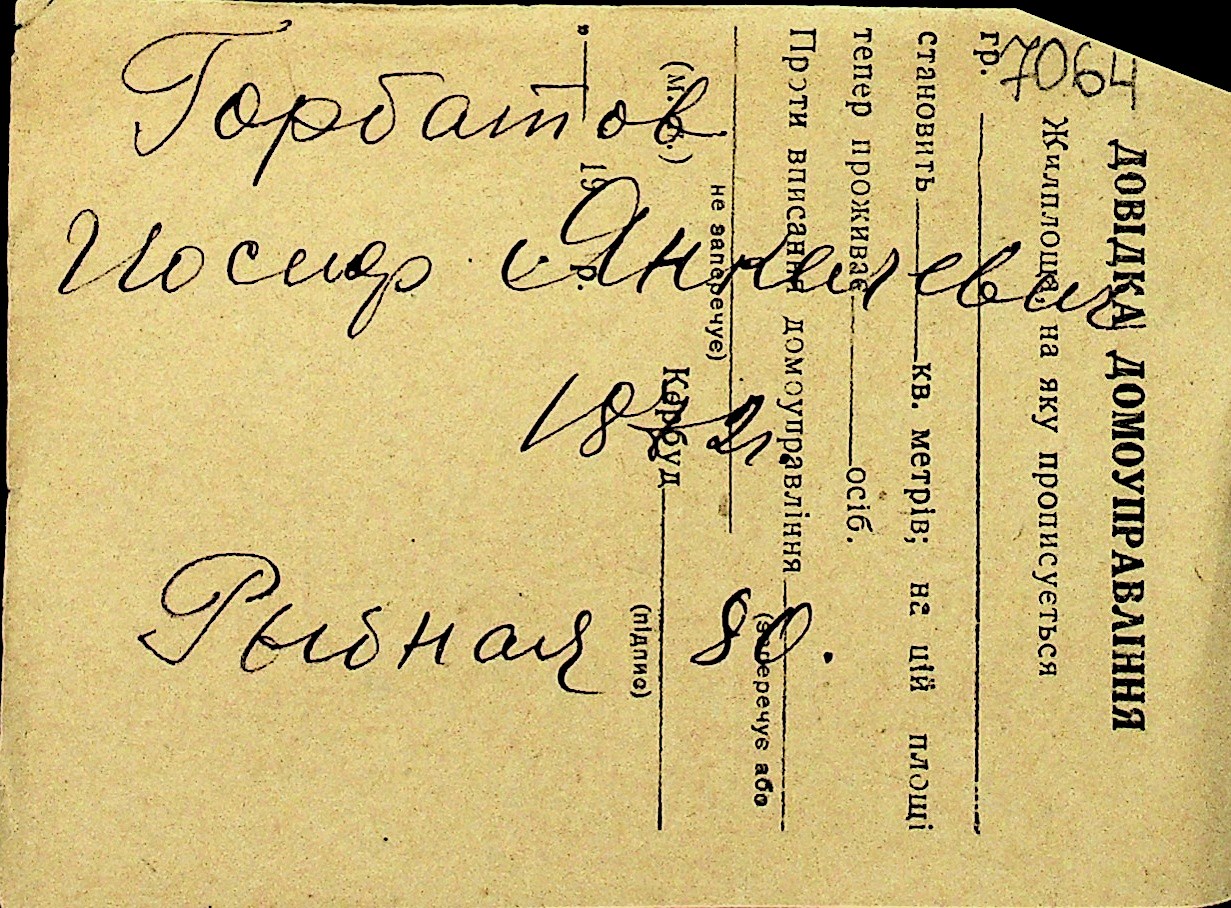 7064
Горбатов
Иосиф Янкелевич
1872г.
Рыбная 80.
ДОВІДКА ДОМОУПРАВЛІННЯ
Жилплоща, на яку прописується
гр.
становить кв. метрів; на цій площі
тепер проживає осіб.
Проти вписання домоуправління
(заперечує або
не заперечує)
Кербуд
(підпис)
(м. п.)
" 19 р.